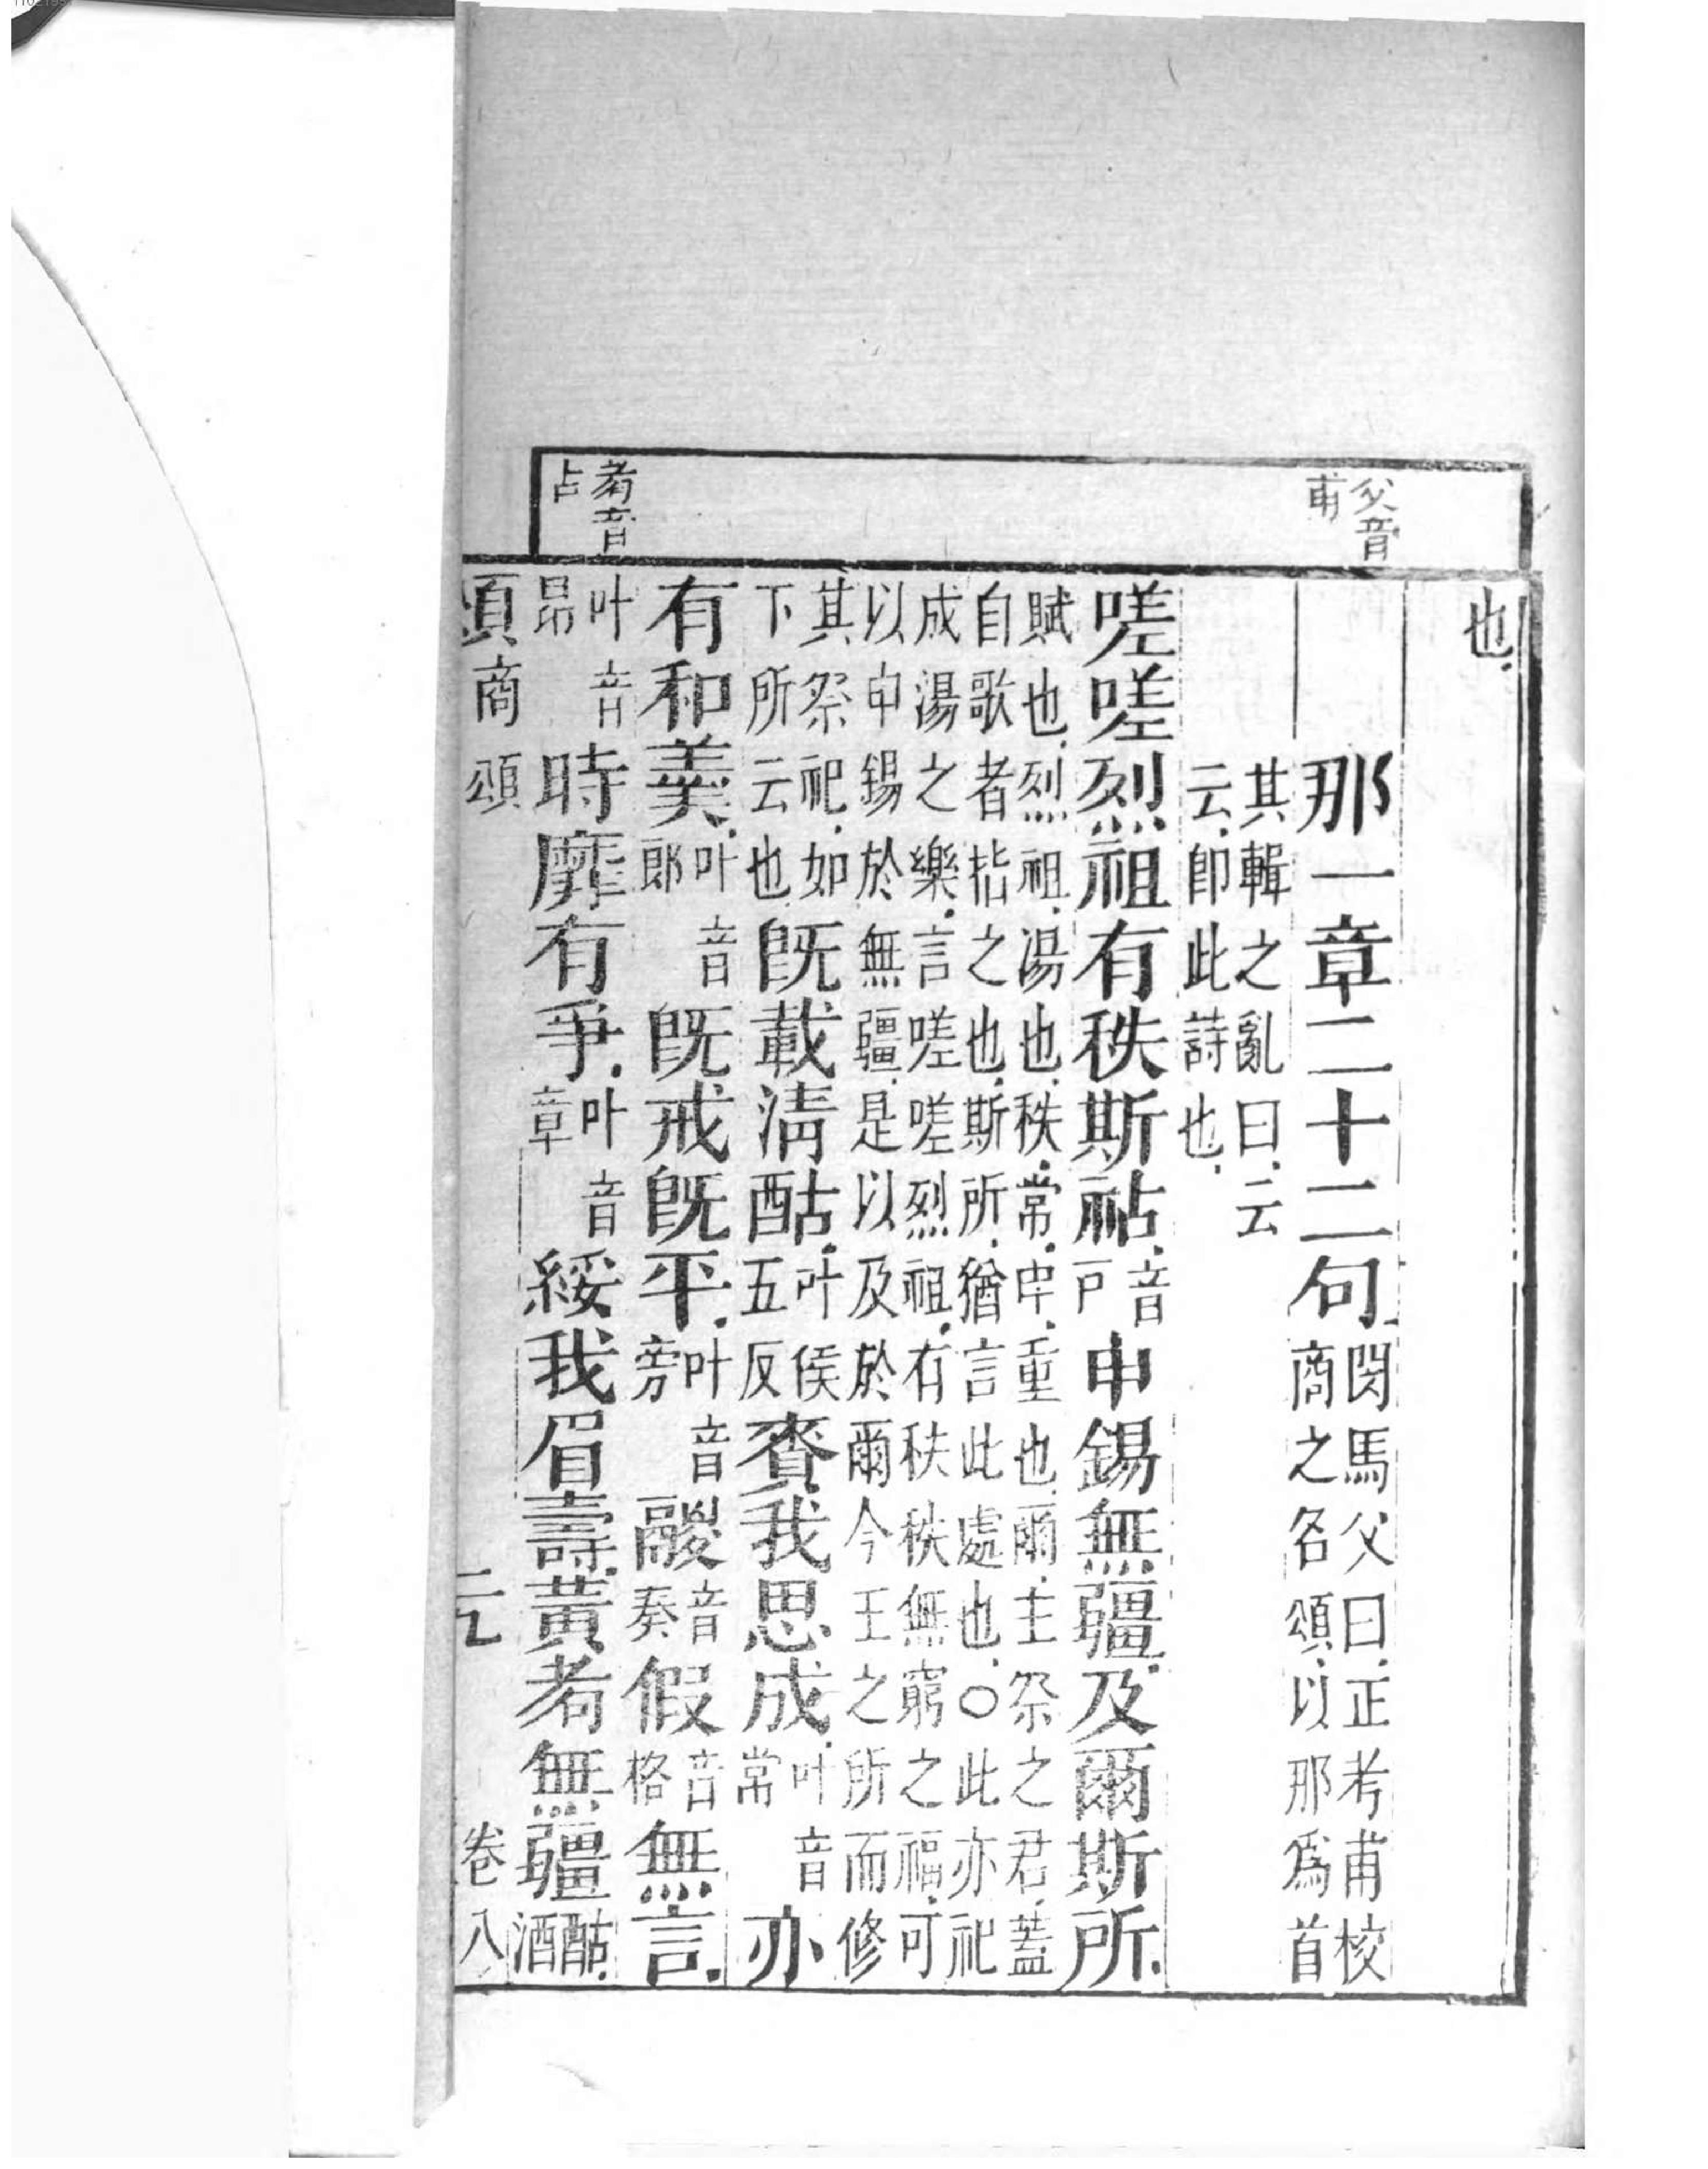 父音
甫
耇音
占
也.
那一章二十二句閔馬父曰.正考甫校
商之名頌.以那爲首
其輯之亂曰.云
云.即此詩也.
嗟嗟烈祖.有秩斯祜.音戶申錫無疆.及爾斯所.
賦也.烈祖.湯也.秩.常.申.重也.爾.主祭之君.蓋
自歌者指之也.斯所.猶言此處也.○此亦祀
成湯之樂.言嗟嗟烈祖.有秩秩無窮之福.可
以申錫於無疆.是以及於爾今王之所而修
其祭祀.如
下所云也.既載清酤.叶侯五反賚我思成.叶音常亦
有和羹.叶音郎既戒既平.叶音旁鬷音奏假音格無言.
叶音昂時靡有爭.叶音章綏我眉壽.黃耇無疆酤.酒
商頌 二九 卷八